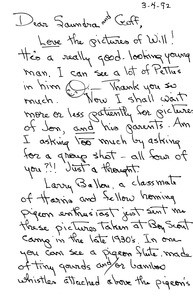 3-4-92
Dear Saundra and Geoff,
Love the pictures of Will!
He's a really good-looking young
man. I can see a lot of Pettus
in him. Thank you so
much. Now I shall wait
more or less patiently for pictures
of Jon, and his parents. Am
I asking too much by asking
for a group shot - all four of
you?!! Just a thought.
Larry Ballou, a classmate
of Harris and fellow homing
pigeon enthusiast just sent me
these pictures taken at Boy Scout
Camp in the late 1930's. In one
you can see a pigeon flute, made
of tiny gourds and/or bamboo
whistles attached above the pigeon's